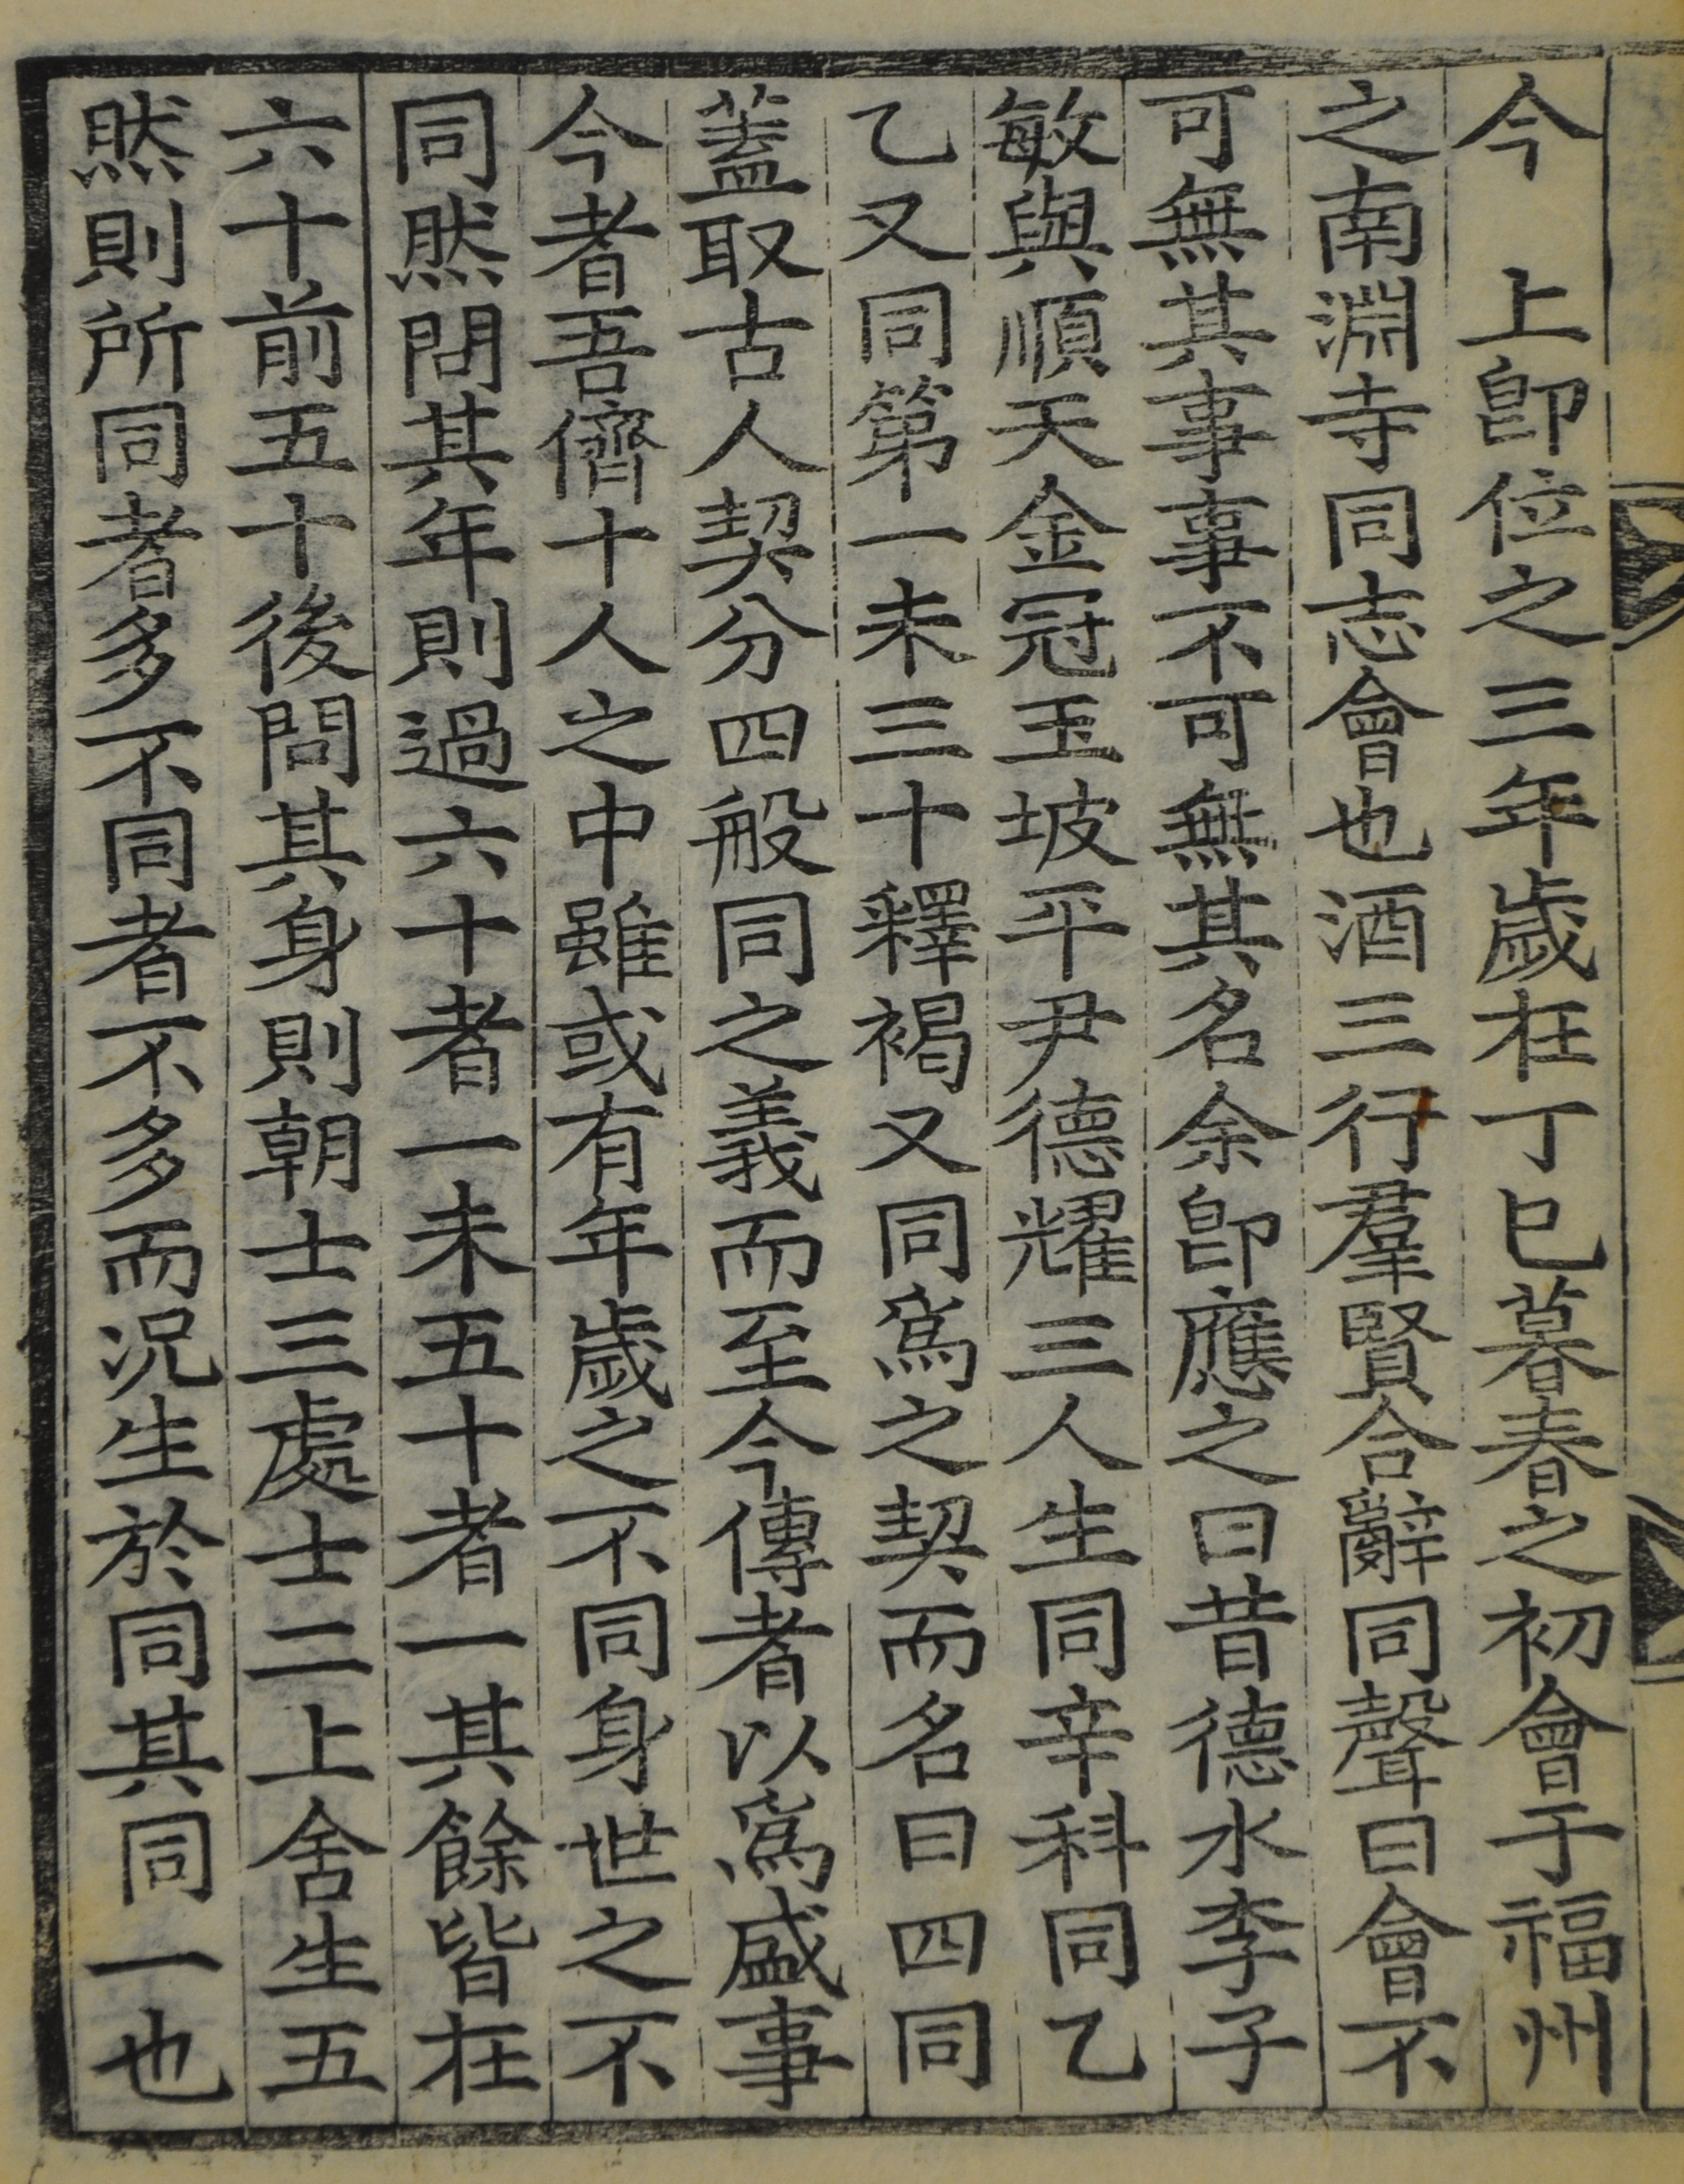 今　上卽位之三年歲在丁巳暮春之初會于福州
之南淵寺同志會也酒三行羣賢合辭同聲曰會不
可無其事事不可無其名余卽應之曰昔德水李子
敏與順天金冠玉坡平尹德耀三人生同辛科同乙
乙又同第一未三十釋褐又同爲之契而名曰四同
蓋取古人契分四般同之義而至今傳者以爲盛事
今者吾儕十人之中雖或有年歲之不同身世之不
同然問其年則過六十者一未五十者一其餘皆在
六十前五十後問其身則朝士三處士二上舍生五
然則所同者多不同者不多而況生於同其同一也